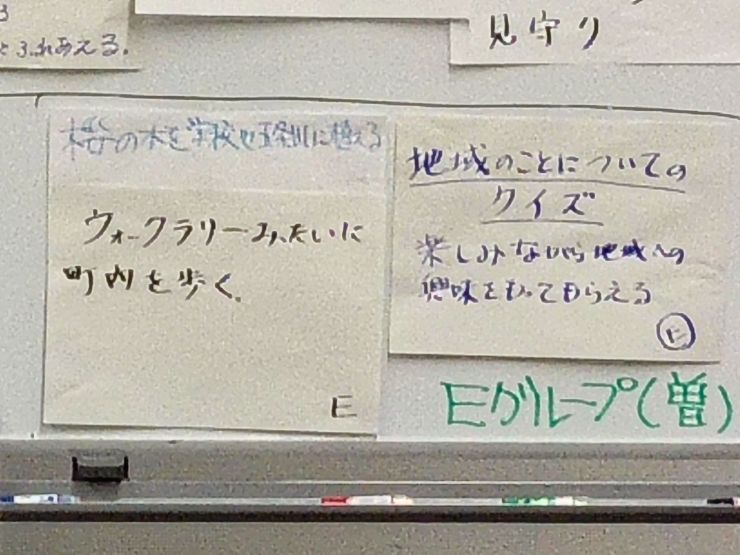 とふれあえる.
見守り
桜の木を学校や五条川に植える
ウォークラリーみたいに
町内を歩く.
E
地域のことについての
クイズ
楽しみながら地域への
興味をもってもらえる
E
Eグループ(曽)